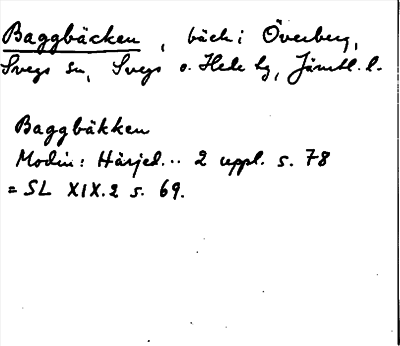 Baggbäcken, bäck i Överberg,
Svegs sn, Svegs o. Hede tg, Jämtl. l.
Baggbäkken
Modin: Härjed... 2 uppl. s. 78
= SL XIX.2 s. 69.